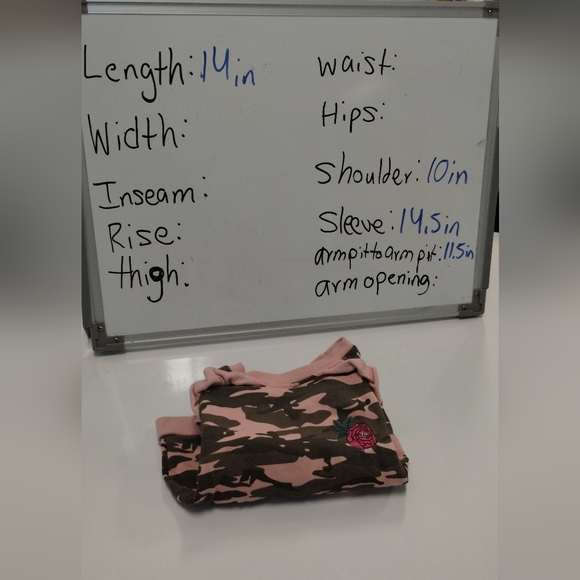 Length: 14in
Width:
Inseam:
Rise:
thigh:
waist:
Hips:
Shoulder: 10in
Sleeve: 14.5in
armpit to arm pit: 11.5in
arm opening: